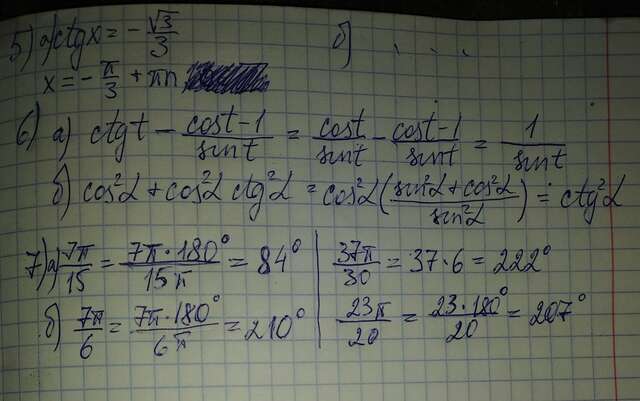 5) а) ctgx = -√3/3   б) . . .
x = -π/3 + πn
6) а) ctgt - cost-1/sint = cost/sint - cost-1/sint = 1/sint
б) cos²α + cos²α ctg²α = cos²α (sin²α + cos²α/sin²α) = ctg²α
7) а) 7π/15 = 7π·180°/15π = 84° | 37π/30 = 37·6 = 222°
б) 7π/6 = 7π·180°/6π = 210° | 23π/20 = 23·180°/20 = 207°